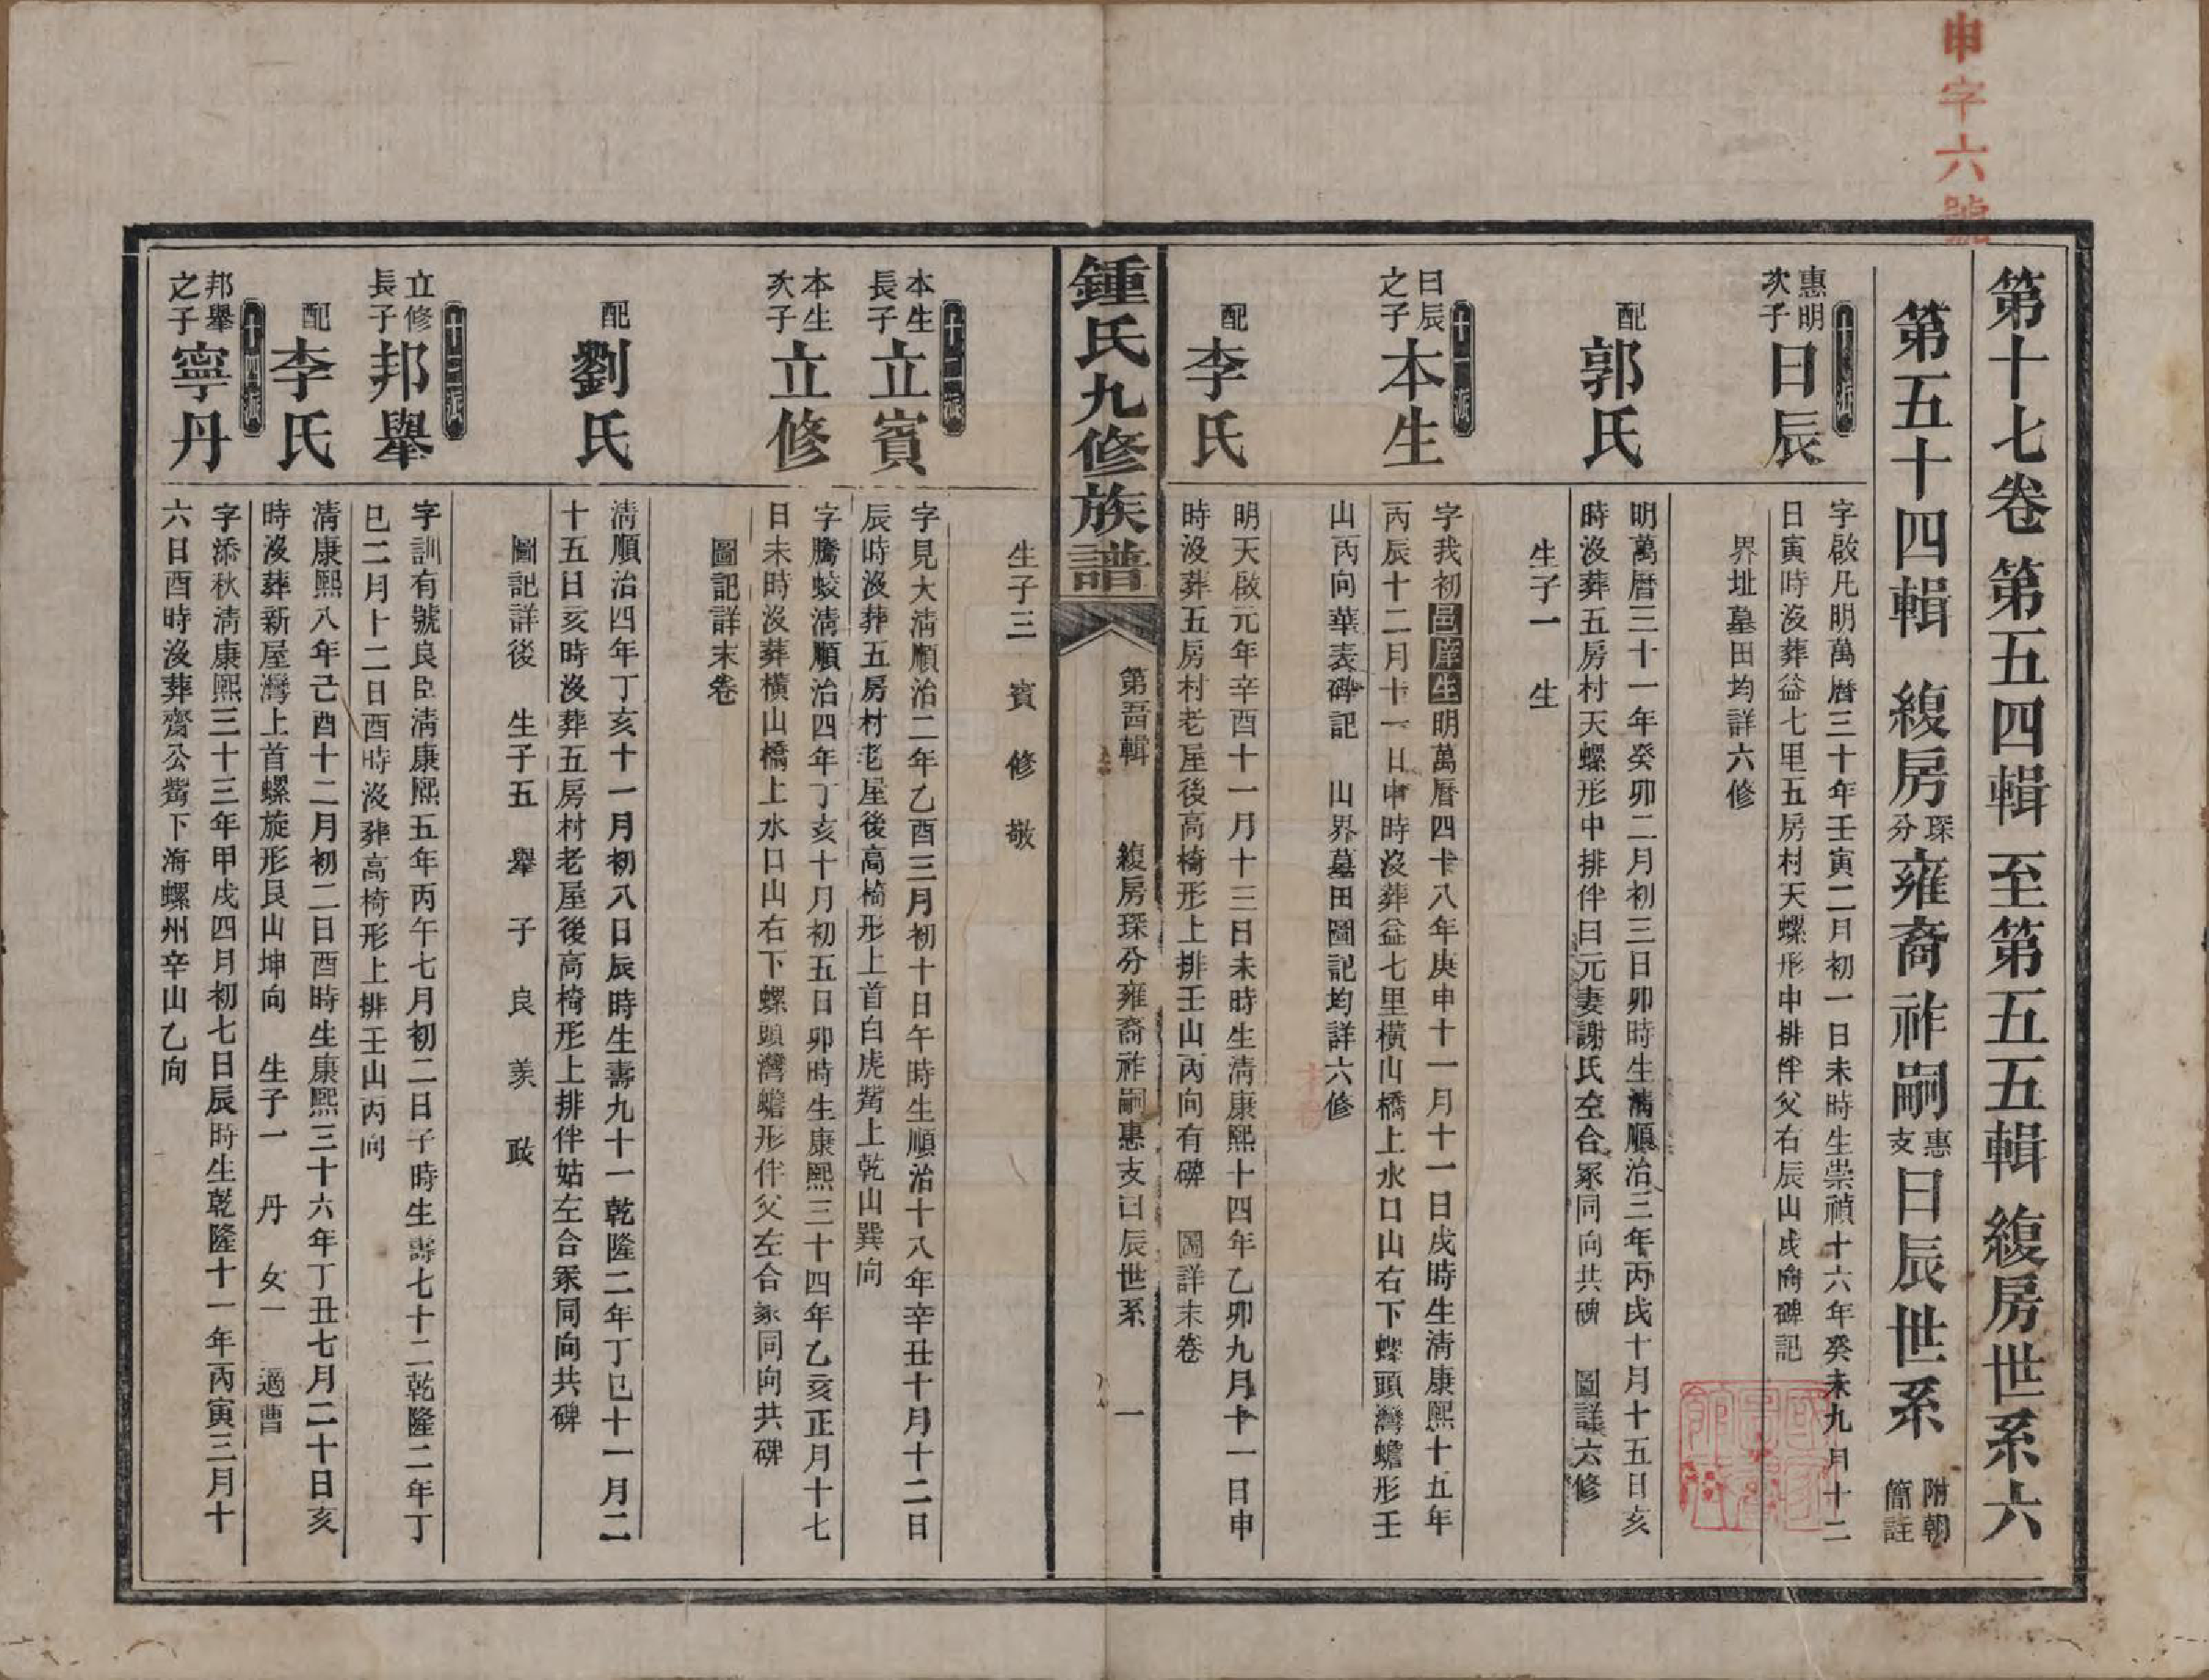 申字六號
第十七卷 第五四輯 至第五五輯 緮房世系六
第五十四輯 緮房琛分雍裔祚嗣惠支日辰世系 附朝簡註
十派
惠明次子日辰
字啟凡明萬曆三十年壬寅二月初一日未時生崇禎十六年癸未九月十二
日寅時沒葬益七里五房村天螺形中排伴父右辰山戌向碑記
界址墓田均詳六修
配郭氏
明萬曆三十一年癸卯二月初三日卯時生淸順治三年丙戌十月十五日亥
時沒葬五房村天螺形中排伴日元妻謝氏左合冢同向共碑 圖詳六修
生子一 生
十一派
日辰之子本生
字我初邑庠生明萬曆四十八年庚申十一月十一日戌時生淸康熙十五年
丙辰十二月十一日申時沒葬益七里橫山橋上水口山右下螺頭灣蟾形壬
山丙向華表碑記 山界墓田圖記均詳六修
配李氏
明天啟元年辛酉十一月十三日未時生淸康熙十四年乙卯九月十一日申
時沒葬五房村老屋後高椅形上排壬山丙向有碑 圖詳末卷
鍾氏九修族譜
第五輯 緮房琛分雍裔祚嗣惠支日辰世系 一
生子三 賓 修 敬
十二派
本生長子立賓
字見大淸順治二年乙酉三月初十日午時生順治十八年辛丑十月十二日
辰時沒葬五房村老屋後高椅形上首白虎嘴上乾山巽向
本生次子立修
字騰蛟淸順治四年丁亥十月初五日卯時生康熙三十四年乙亥正月十七
日未時沒葬橫山橋上水口山右下螺頭灣蟾形伴父左合冢同向共碑
圖記詳末卷
配劉氏
淸順治四年丁亥十一月初八日辰時生壽九十一乾隆二年丁巳十一月二
十五日亥時沒葬五房村老屋後高椅形上排伴姑左合冢同向共碑
圖記詳後 生子五 舉 子 良 羨 政
十三派
立修長子邦舉
字訓有號良臣淸康熙五年丙午七月初二日子時生壽七十二乾隆二年丁
巳二月十二日酉時沒葬高椅形上排壬山丙向
配李氏
淸康熙八年己酉十二月初二日酉時生康熙三十六年丁丑七月二十日亥
時沒葬新屋灣上首螺旋形艮山坤向 生子一 丹 女一 適曹
十四派
邦舉之子寧丹
字添秋淸康熙三十三年甲戌四月初七日辰時生乾隆十一年丙寅三月十
六日酉時沒葬齋公嘴下海螺州辛山乙向